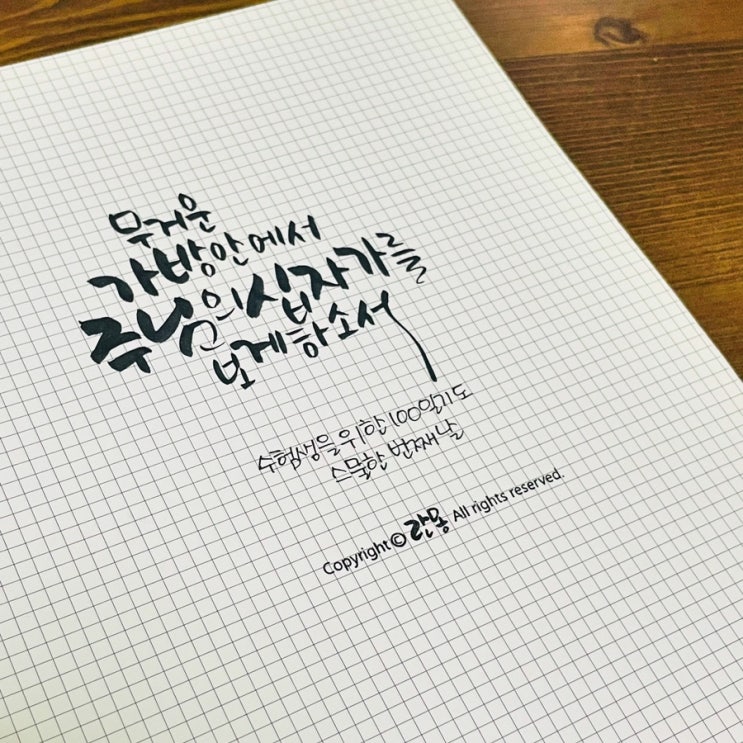 무거운
가방안에서
주님의십자가를
보게하소서
수험생을위한100일기도
스물한 번째날
Copyright © 란몽 All rights reserved.